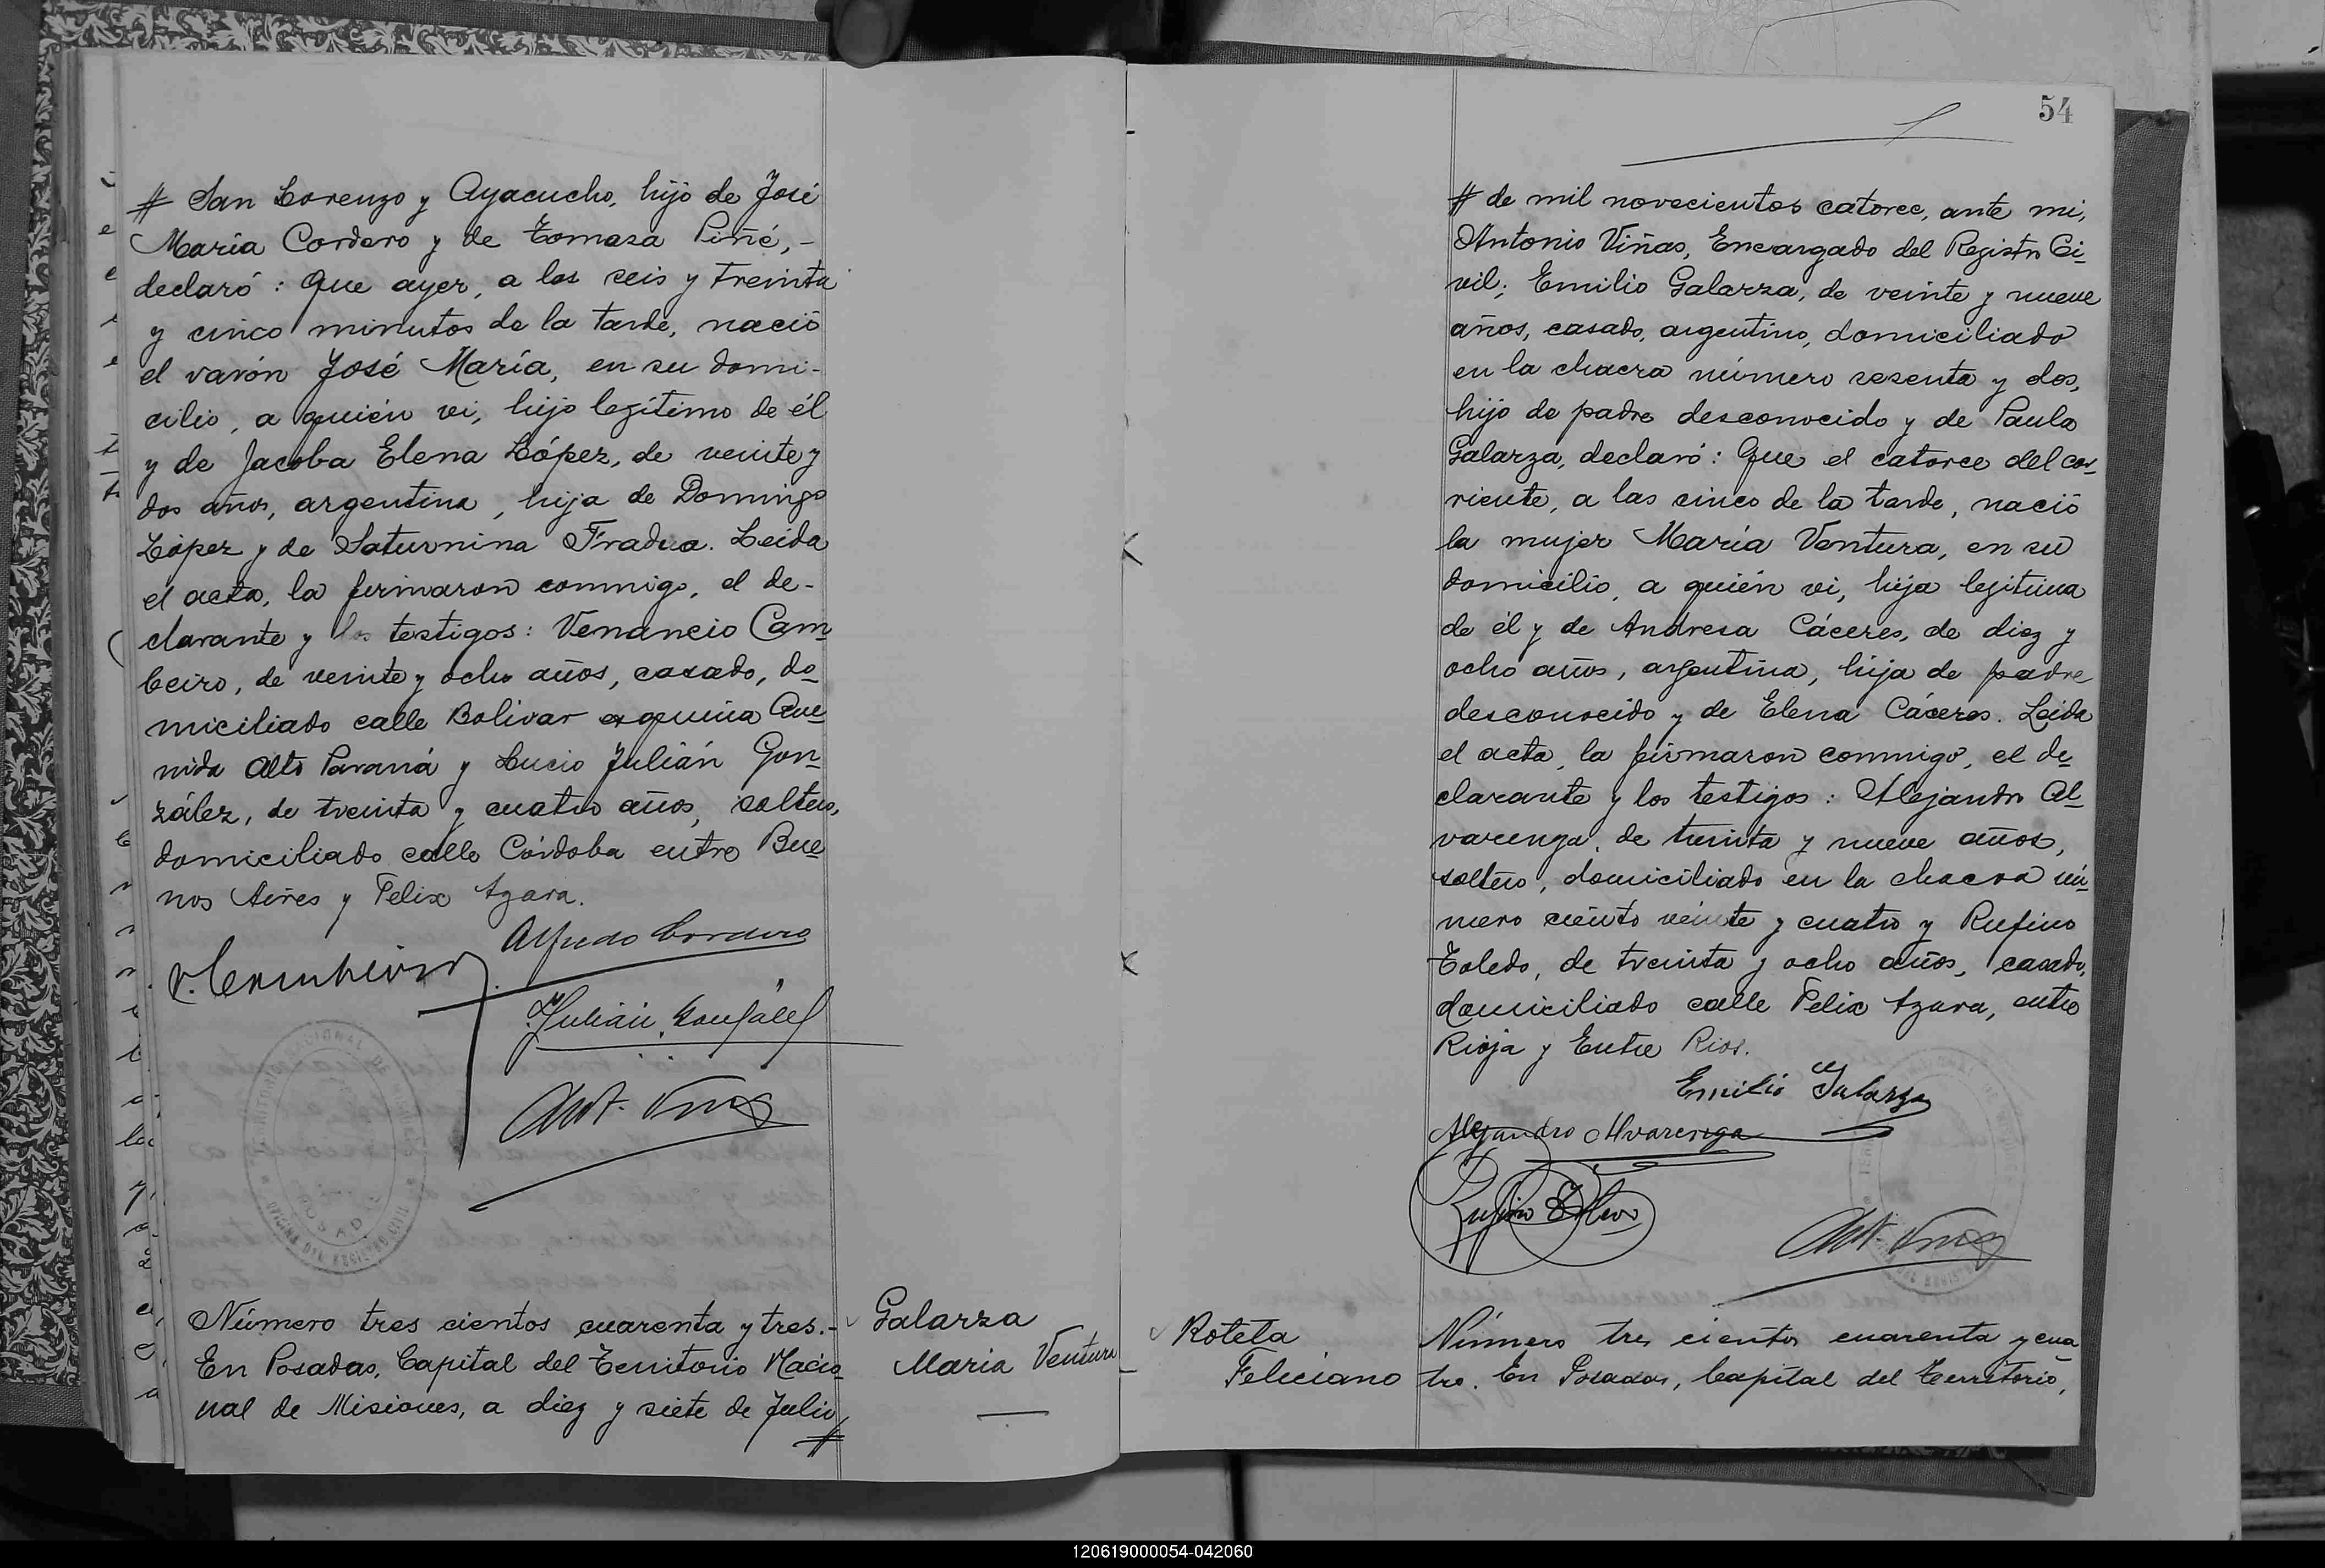 # San Lorenzo y Ayacucho, hijo de José
María Cordero y de Tomasa Piñé, -
declaró: Que ayer, a las seis y treinta
y cinco minutos de la tarde, nació
el varón José María, en su domi-
cilio, a quién vi, hijo legítimo de él
y de Jacoba Elena López, de veinte y
dos años, argentina, hija de Domingo
López y de Saturnina Fradua. Leida
el acta, la firmaron conmigo, el de-
clarante y los testigos: Venancio Cam
beiro, de veinte y ocho años, casado, do
miciliado calle Bolivar esquina Ave
nida Alto Paraná y Lucio Julián Gon
zález, de treinta y cuatro años, soltero,
domiciliado calle Córdoba entre Bue
nos Aires y Felix Azara.
Alfredo Cordero
V. Cambeiro
Julián González
Ant. Viñas
OFICINA DEL REGISTRO CIVIL
POSADAS
Número tres cientos cuarenta y tres.-
En Posadas, Capital del Territorio Nacio
nal de Misiones, a diez y siete de Julio
#
Galarza
Maria Ventura
54
# de mil novecientos catorce, ante mi,
Antonio Viñas, Encargado del Registro Ci
vil; Emilio Galarza, de veinte y nueve
años, casado, argentino, domiciliado
en la chacra número sesenta y dos,
hijo de padre desconocido y de Paula
Galarza, declaró: Que el catorce del cor
riente, a las cinco de la tarde, nació
la mujer María Ventura, en su
domicilio, a quién vi, hija legitima
de él y de Andresa Cáceres, de diez y
ocho años, argentina, hija de padre
desconocido y de Elena Cáceres. Leida
el acta, la firmaron conmigo, el de
clarante y los testigos: Alejandro Al
varenga, de treinta y nueve años,
soltero, domiciliado en la chacra nú
mero ciento veinte y cuatro y Rufino
Toledo, de treinta y ocho años, casado,
domiciliado calle Felix Azara, entre
Rioja y Entre Rios.
Emilio Galarza
Alejandro Alvarenga
Rufino Toledo
Ant. Viñas
Roteta
Feliciano
Número tres cientos cuarenta y cua
tro. En Posadas, Capital del Territorio,
120619000054-042060